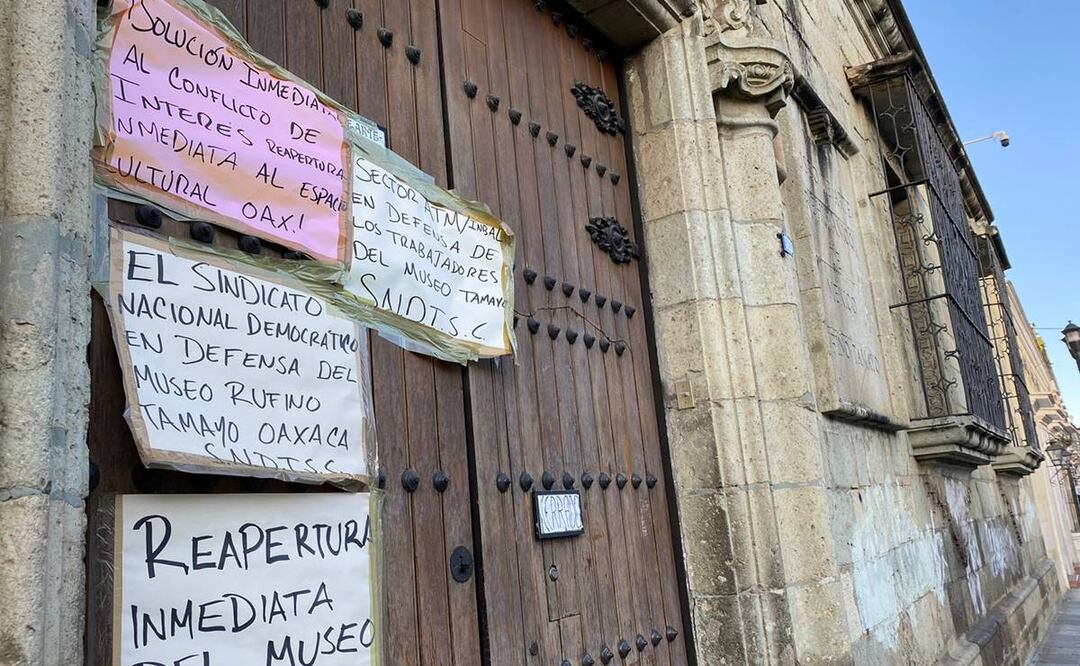 ¡SOLUCIÓN INMEDIATA
AL CONFLICTO DE
INTERÉS REAPERTURA
INMEDIATA AL ESPACIO
CULTURAL OAX.!
SECTOR ATM/INBAL
EN DEFENSA DE
LOS TRABAJADORES
DEL MUSEO TAMAYO
S.N.D.T.S.C.
EL SINDICATO
NACIONAL DEMOCRÁTICO
EN DEFENSA DEL
MUSEO RUFINO
TAMAYO OAXACA
S.N.D.T.S.C
REAPERTURA
INMEDIATA
DEL MUSEO
CERRADO